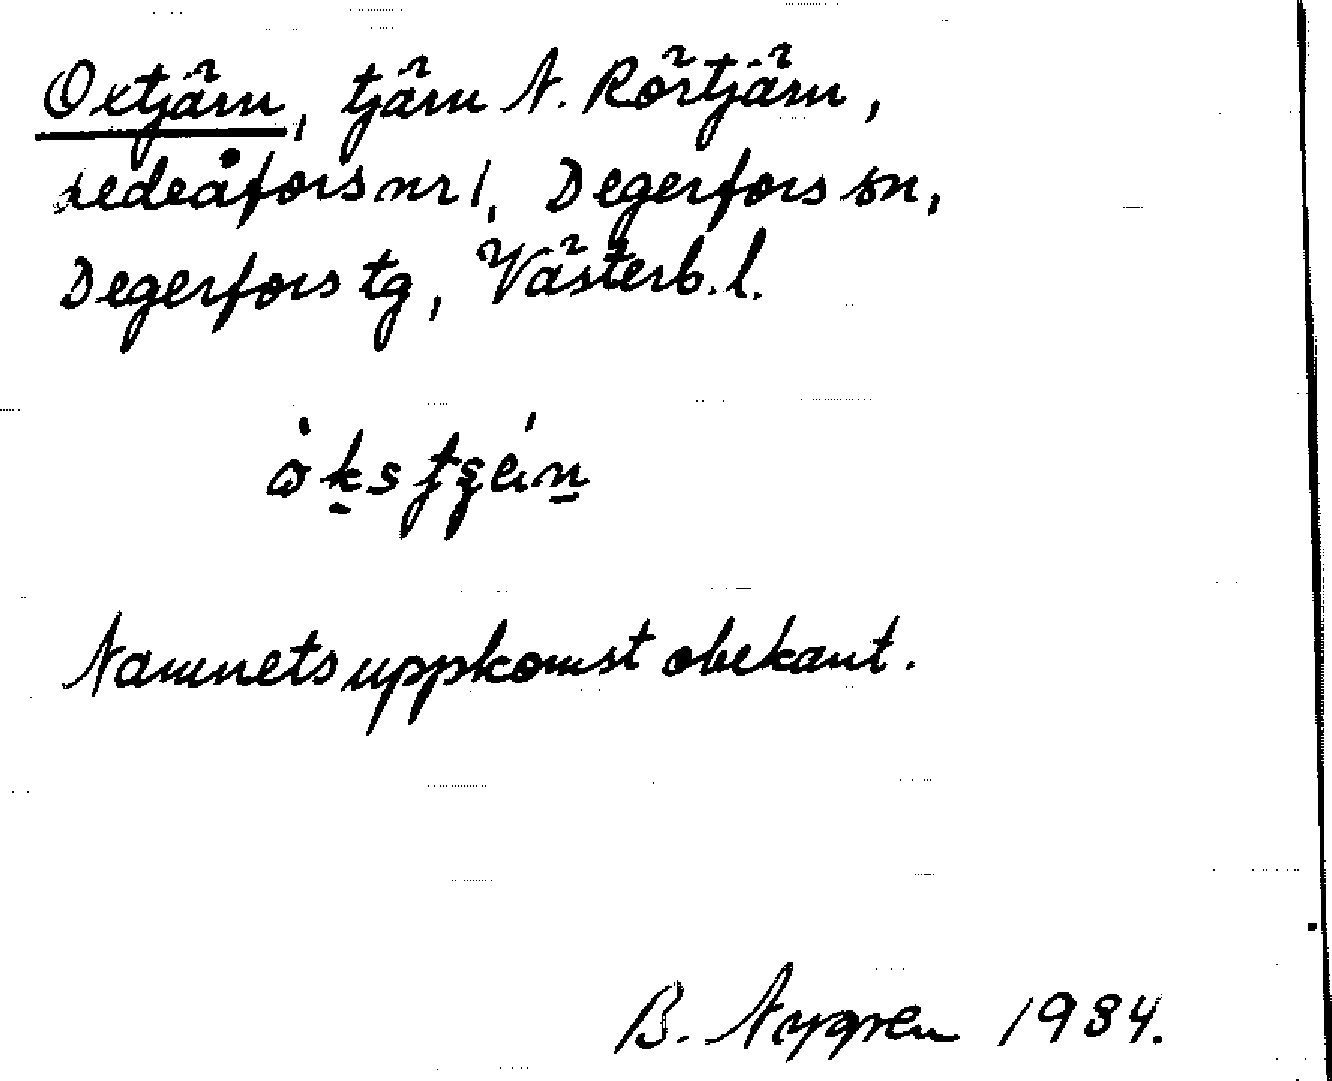 Oxtjärn, tjärn N. Rörtjärn,
Hedeåfors nr 1, Degerfors sn,
Degerfors tg, Västerb. l.
Namnets uppkomst obekant.
B. Nygren 1934.